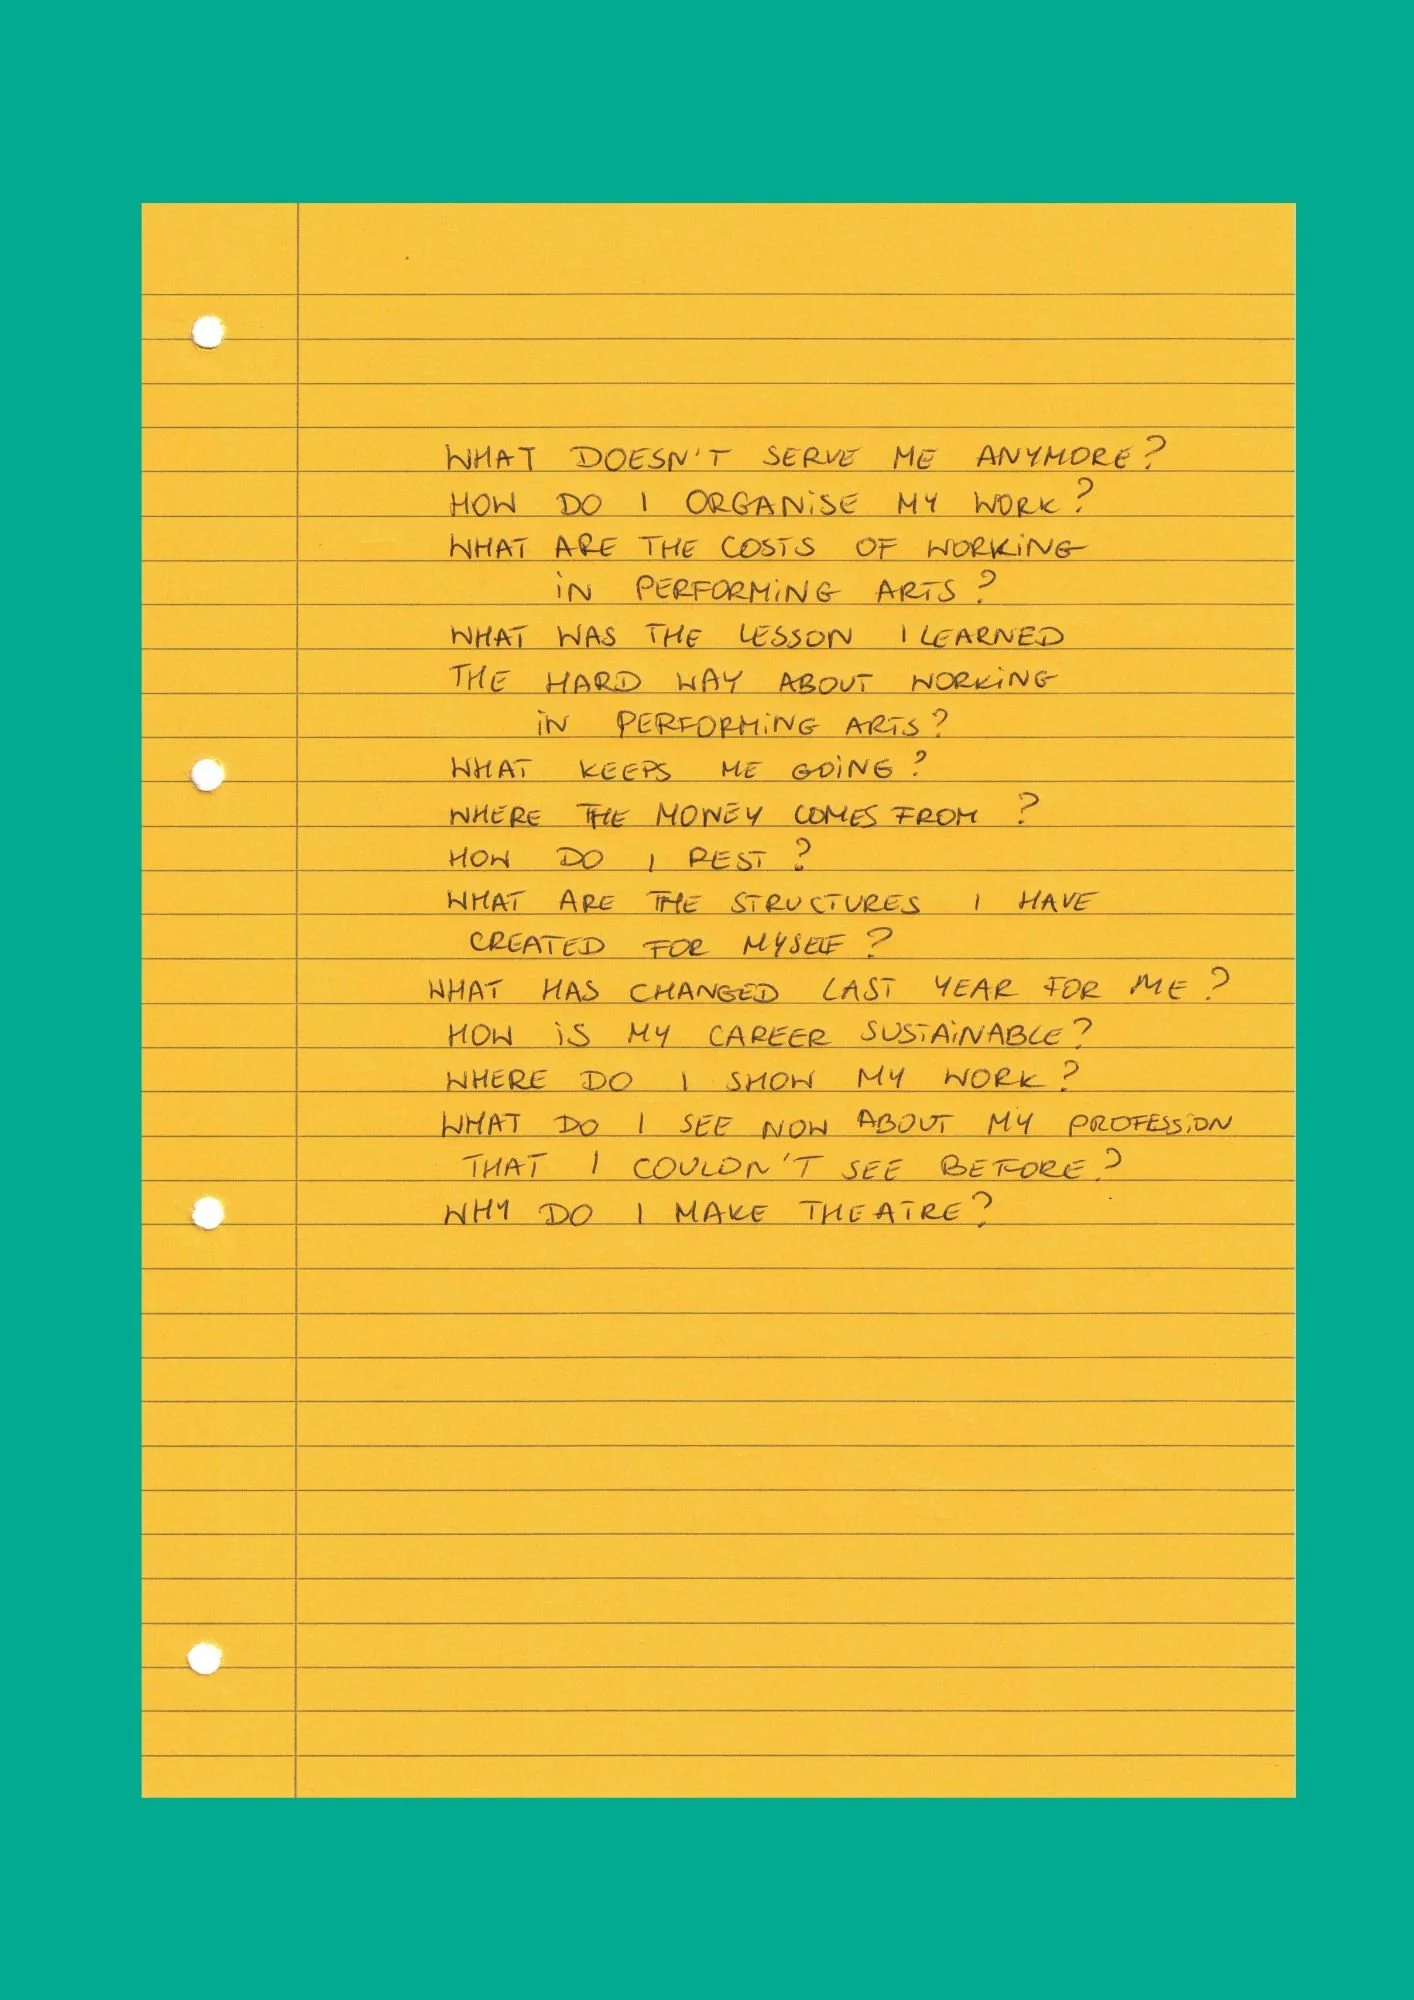 WHAT DOESN'T SERVE ME ANYMORE?
HOW DO I ORGANISE MY WORK?
WHAT ARE THE COSTS OF WORKING
IN PERFORMING ARTS?
WHAT WAS THE LESSON I LEARNED
THE HARD WAY ABOUT WORKING
IN PERFORMING ARTS?
WHAT KEEPS ME GOING?
WHERE THE MONEY COMES FROM?
HOW DO I REST?
WHAT ARE THE STRUCTURES I HAVE
CREATED FOR MYSELF?
WHAT HAS CHANGED LAST YEAR FOR ME?
HOW IS MY CAREER SUSTAINABLE?
WHERE DO I SHOW MY WORK?
WHAT DO I SEE NOW ABOUT MY PROFESSION
THAT I COULDN'T SEE BEFORE?
WHY DO I MAKE THEATRE?